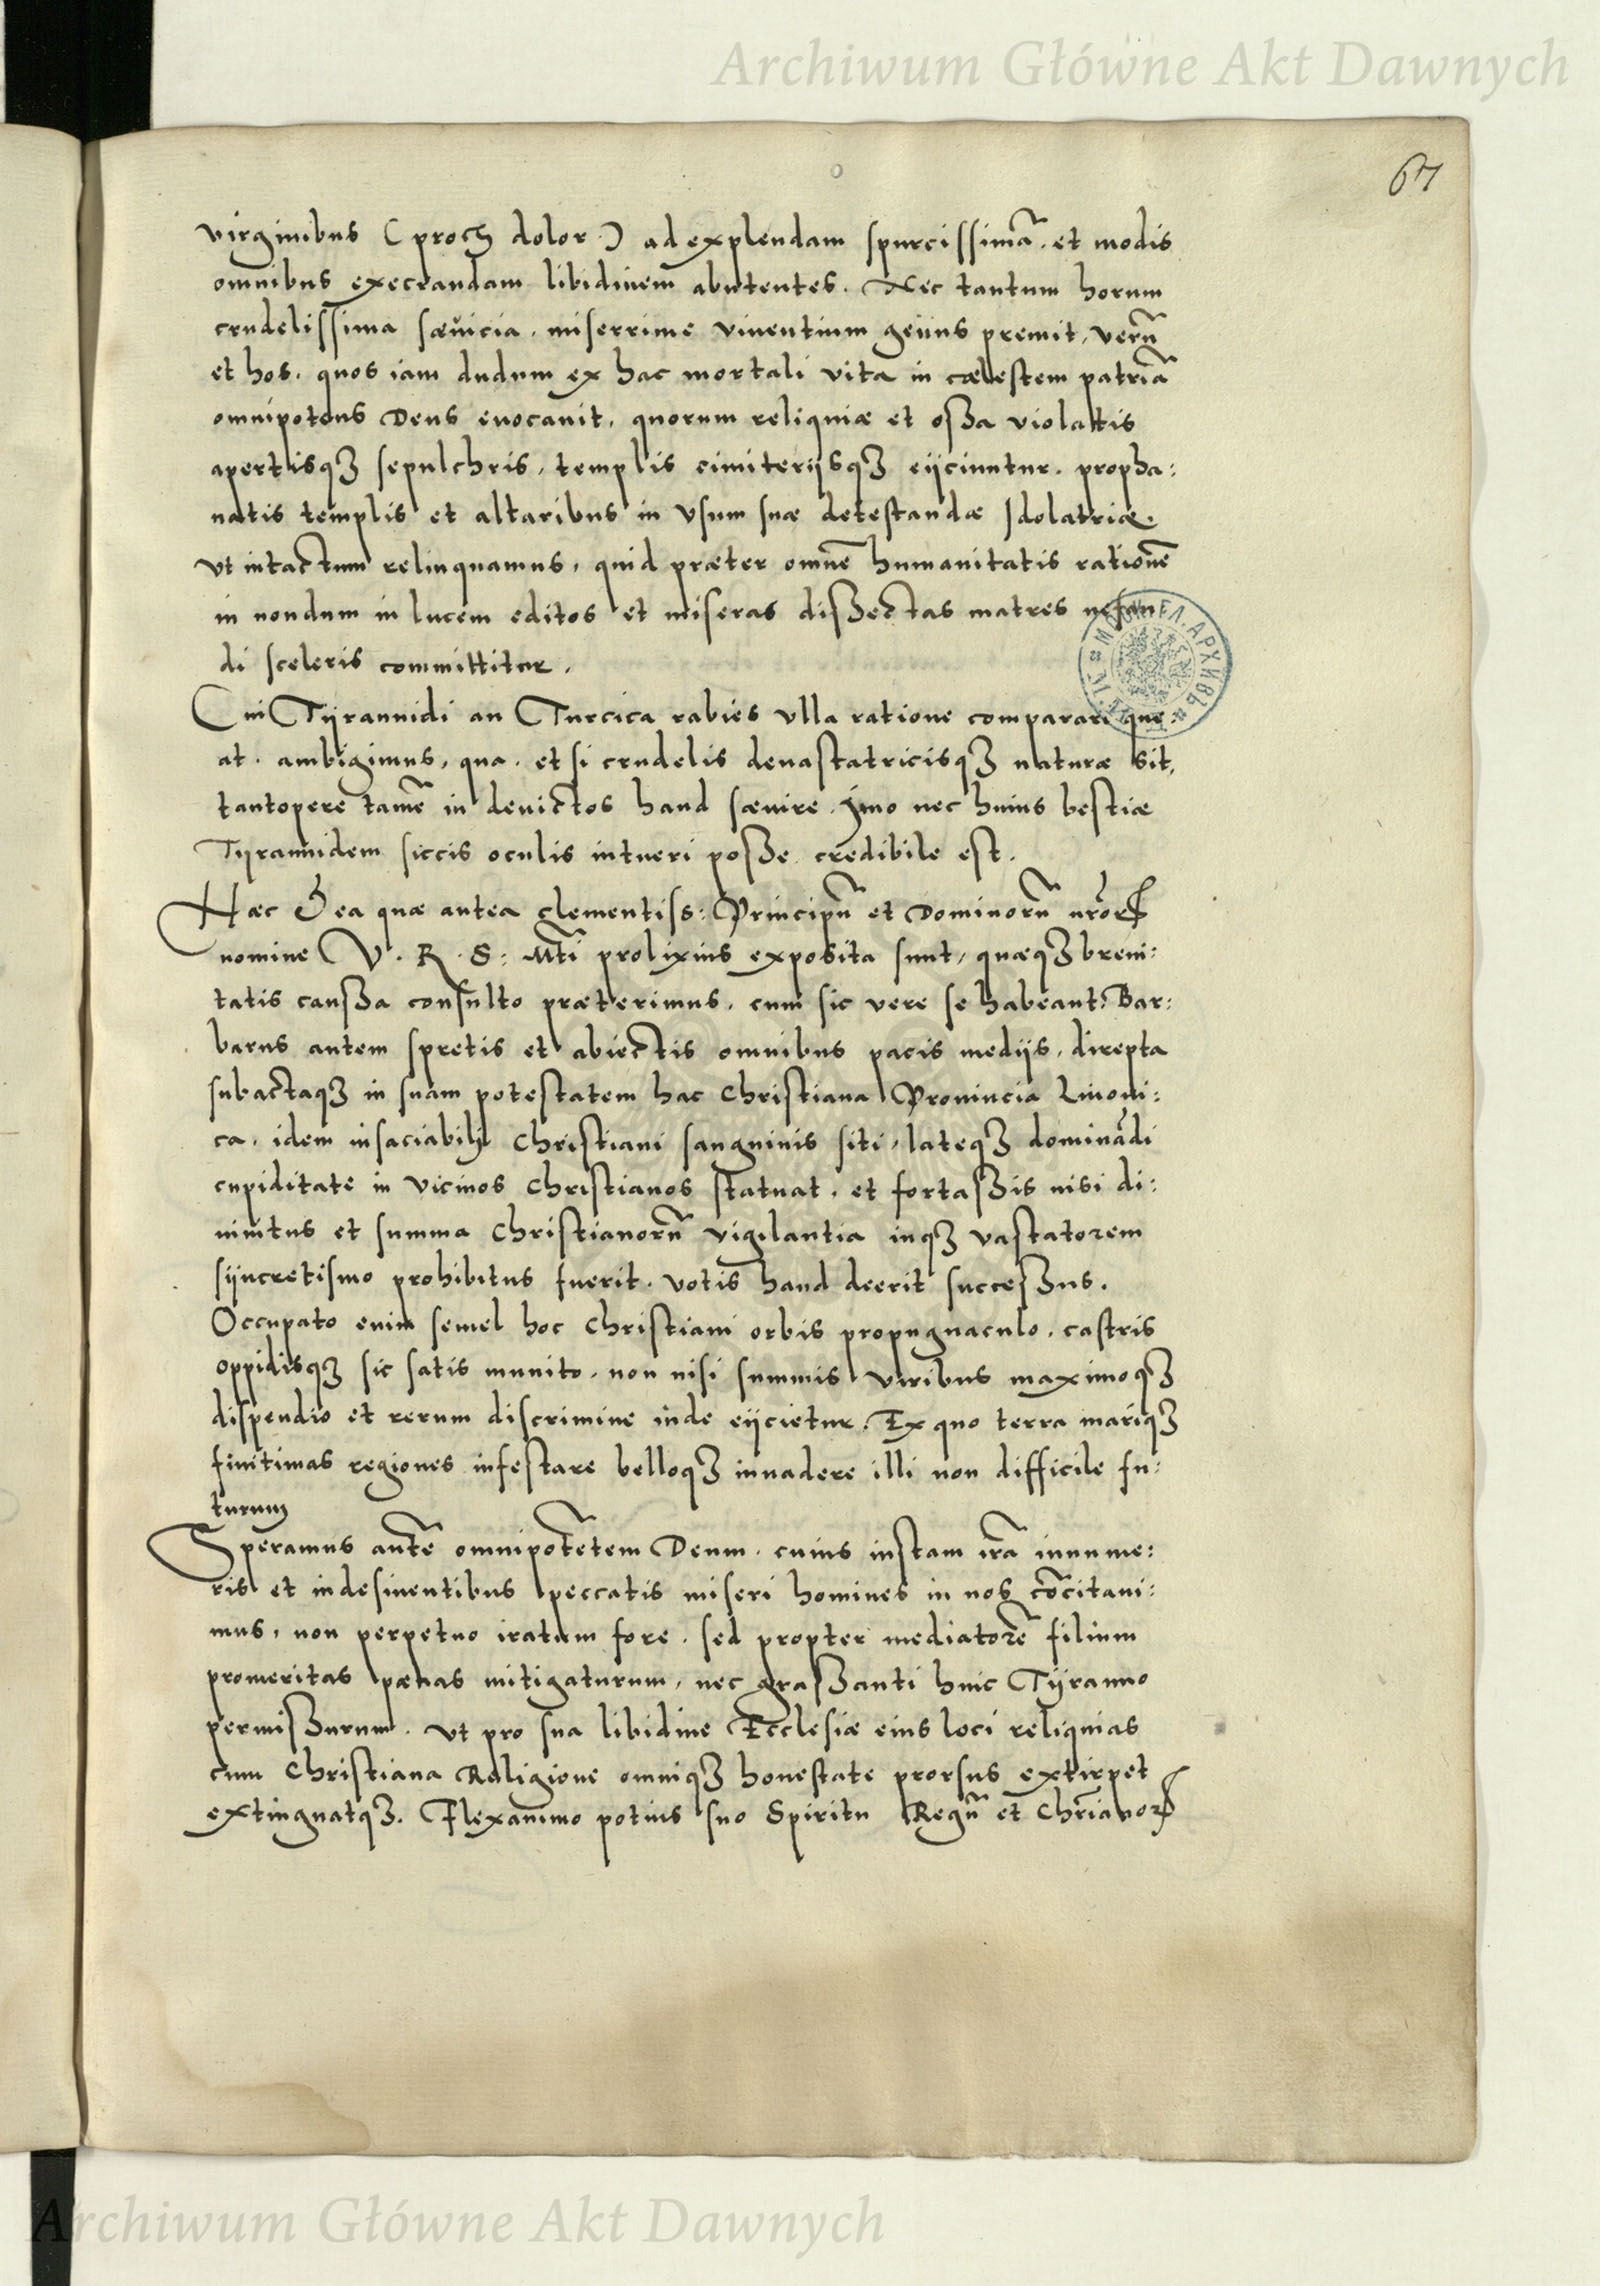 Archiwum Główne Akt Dawnych
67
virginibus (proch dolor) ad explendam spurcissimā. et modis
omnibus execrandam libidinem abutentes. Nec tantum horum
crudelissima sæuicia. miserrime viuentium genus premit, verū
et hos. quos iam dudum ex hac mortali vita in cælestem patriā
omnipotens Deus euocauit, quorum reliquiæ et ossa violattis
apertisqꝫ sepulchris, templis cimiterijsqꝫ eijciuntur. propha:
natis templis et altaribus in vsum suæ detestandæ Idolatriæ.
vt intactum relinquamus, quid præter omnē humanitatis rationē
in nondum in lucem editos et miseras dissectas matres nefan
di sceleris committitur.
Cui Tÿrannidi an Turcica rabies vlla ratione comparari que:
at. ambigimus, qua. et si crudelis deuastatricisqꝫ naturæ sit,
tantopere tamē in deuictos haud sæuire. Imo nec huius bestiæ
Tÿrannidem siccis oculis intueri posse credibile est.
Hæc & ea quæ antea clementiss: Principū et Dominorū nr̄orꝭ
nomine V. R. S: Mti prolixius exposita sunt, quæqꝫ breui:
tatis caussa consulto præterimus, cum sic vere se habeant, Bar:
barus autem spretis et abiectis omnibus pacis medijs, direpta
subactaqꝫ in suam potestatem hac Christiana Prouincia Liuoni:
ca, idem insaciabili Christiani sanguinis siti, lateqꝫ dominādi
cupiditate in vicinos Christianos statuat, et fortassis nisi di:
uinitus et summa Christianorū vigilantia inqꝫ vastatorem
sÿncretismo prohibitus fuerit. votis haud deerit successus.
Occupato enim semel hoc Christiani orbis propugnaculo, castris
oppidisqꝫ sic satis munito, non nisi summis viribus maximoqꝫ
dispendio et rerum discrimine inde eijcietur. Ex quo terra mariqꝫ
finitimas regiones infestare belloqꝫ inuadere illi non difficile fu:
turum
Speramus autē omnipotētem Deum. cuius iustam irā innume:
ris et indesinentibus peccatis miseri homines in nos cōcitaui:
mus, non perpetuo iratum fore. sed propter mediatorē filium
promeritas pænas mitigaturum, nec grassanti huic Tÿranno
permissurum. vt pro sua libidine Ecclesiæ eius loci reliquias
cum Christiana Religione omniqꝫ honestate prorsus extirpet
extinguatqꝫ. Flexanimo potius suo Spiritu Regū et Chr̄ianorꝭ
Archiwum Główne Akt Dawnych